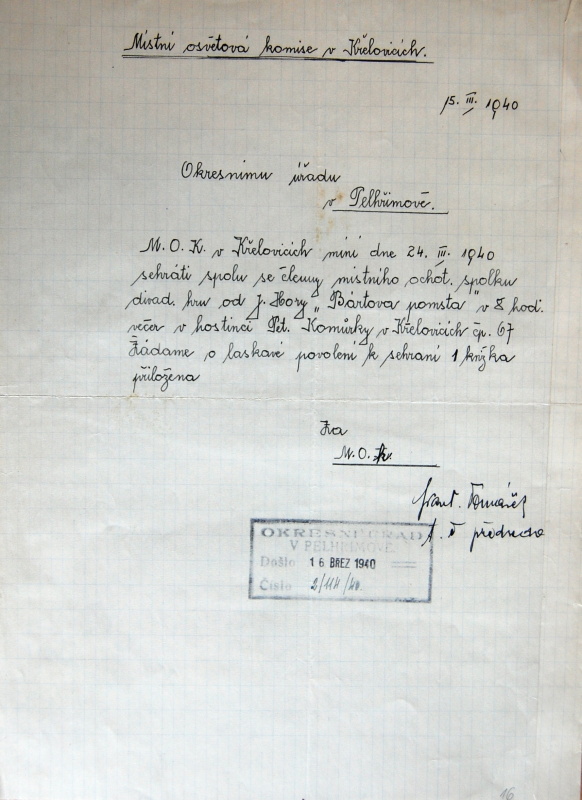 Místní osvětová komise v Křelovicích.
15. III. 1940
Okresnímu úřadu
v Pelhřimově.
M. O. K. v Křelovicích míní dne 24. III. 1940
sehráti spolu se členy místního ochot. spolku
divad. hru od J. Hory „Bártova pomsta" v 8 hodi.
večer v hostinci Pet. Komůrky v Křelovicích čp. 67
Žádáme o laskavé povolení k sehraní 1 knížka
přiložena
Za
M. O. K.
Frant. Tomášek
t. č. předseda
OKRESNÍ ÚŘAD
V PELHŘIMOVĚ
Došlo 16 BŘEZ 1940
Číslo 2/114/40.
16